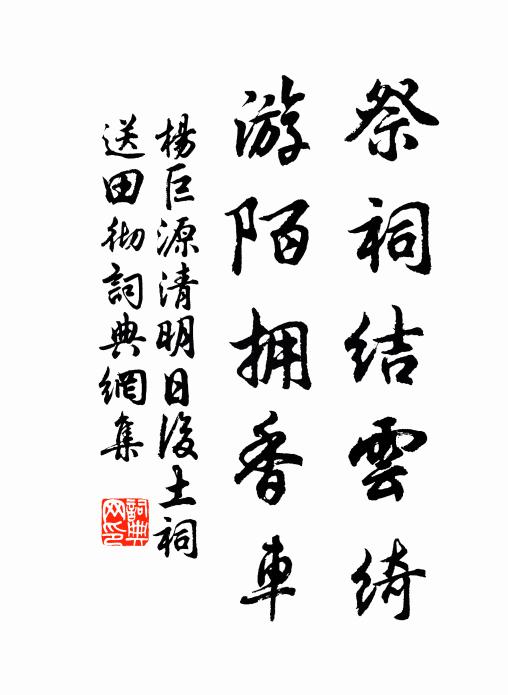 祭祠结雲绮
游陌拥香車
楊巨源清明日後土祠
送田彻詞典網集
詞典
网印